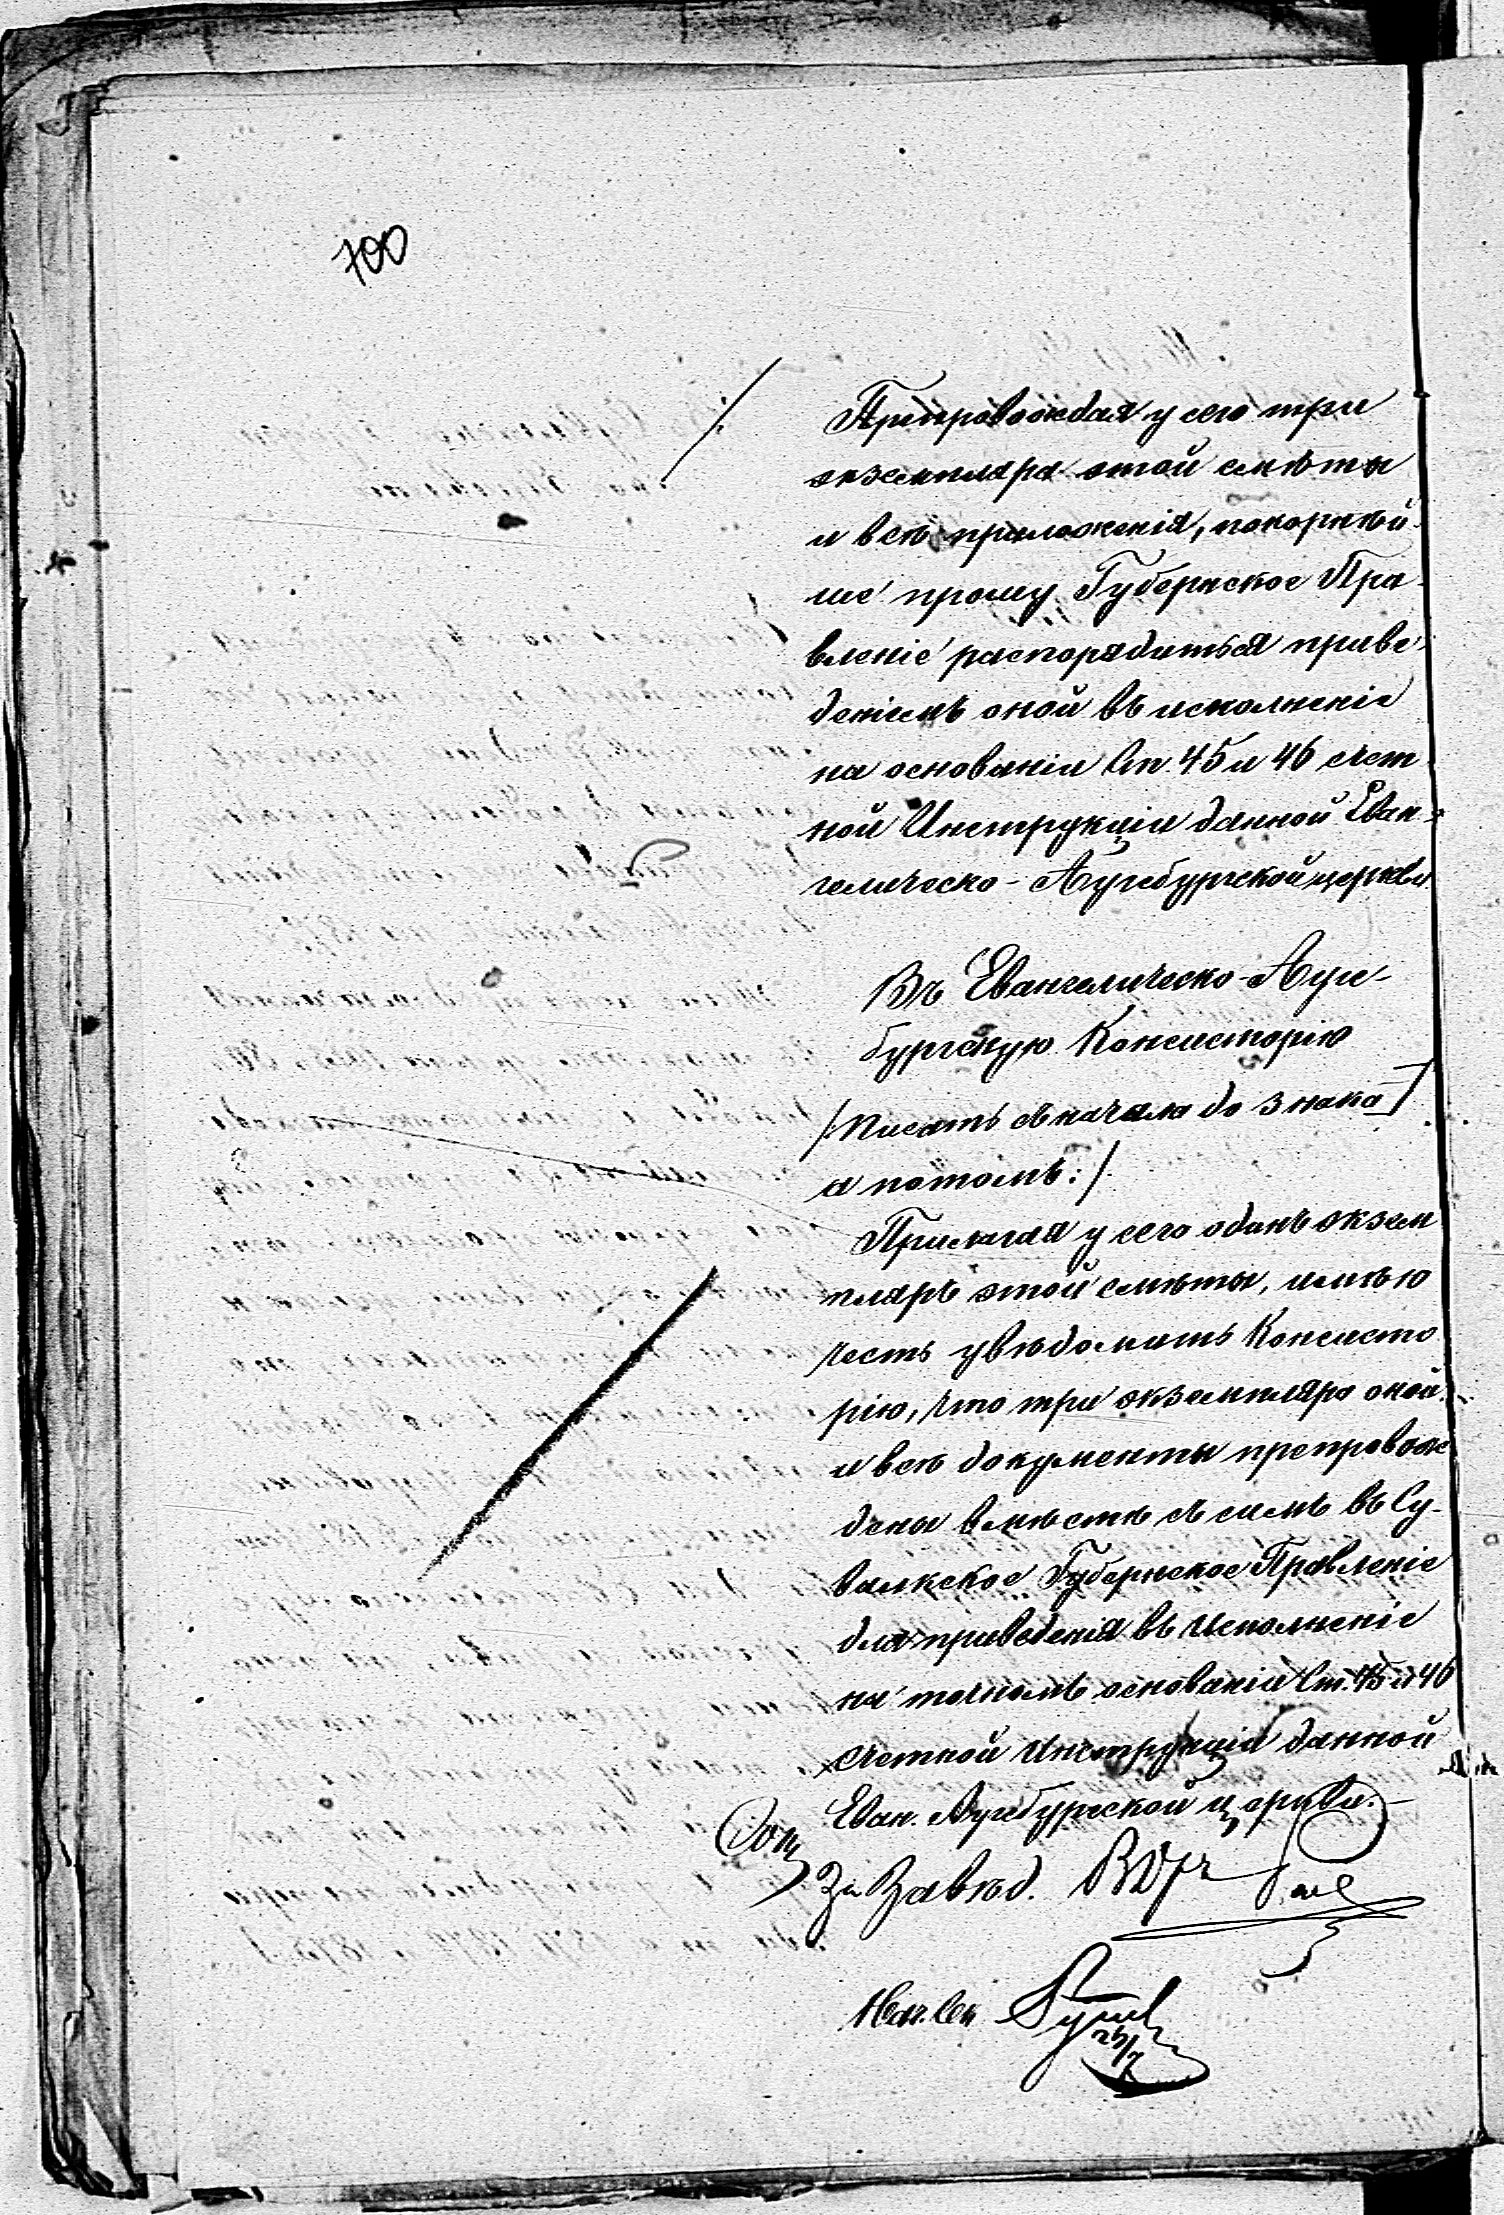 700
Препровождая у сего три
экземпляра этой смѣты
и всѣ приложенія, покорнѣй-
ше прошу Губернское Пра-
вленіе распорядиться приве-
деніемъ оной въ исполненіе
на основаніи Ст. 45 и 46 счет-
ной Инструкціи данной Еван-
гелическо-Аугсбургской церкви
Въ Евангелическо-Аугс-
бургскую Консисторію
/:Писать съ начала до знака
а потомъ:/
Прилагая у сего одинъ экзем
пляръ этой смѣты, имѣю
честь увѣдомить Консисто
рію, что три экземпляра оной
и всѣ документы препровож
дены вмѣстѣ съ симъ въ Су-
валкское Губернское Правленіе
для приведенія въ исполненіе
на точномъ основаніи Ст. 45 и 46
счетной Инструкціи данной
Еван. Аугсбургской церкви.
За Завѣд.
26/7